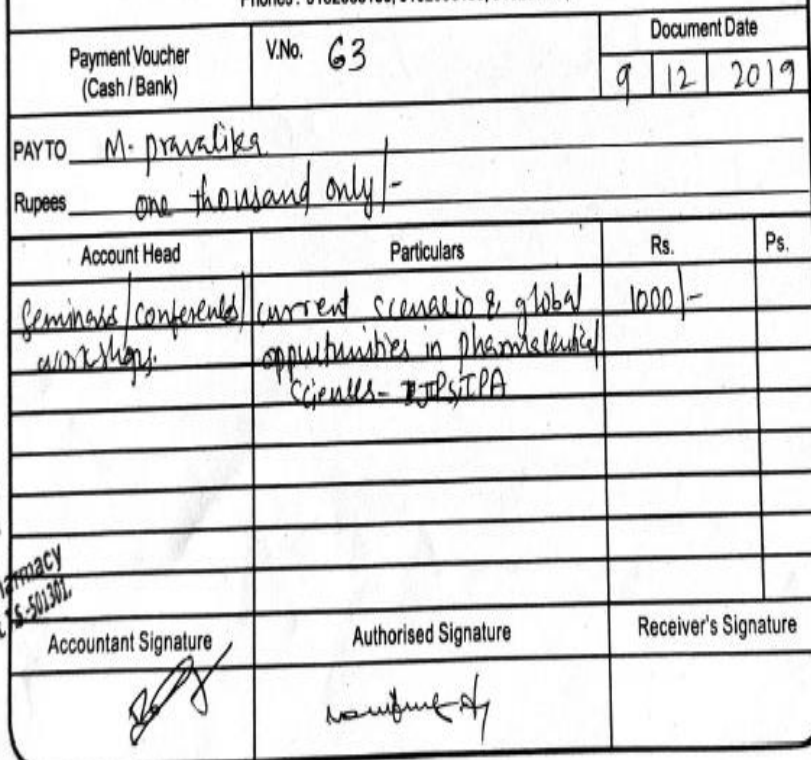 Payment Voucher
(Cash / Bank)
V.No. 63
Document Date
9 12 2019
PAY TO M. pravalika
Rupees one thousand only/-
Account Head Particulars Rs. Ps.
Seminars/conferences/ current scenario & global 1000/-
workshops. oppurtunities in pharmaceutical
Sciences- IPA
armacy
TS-501301.
Accountant Signature Authorised Signature Receiver's Signature